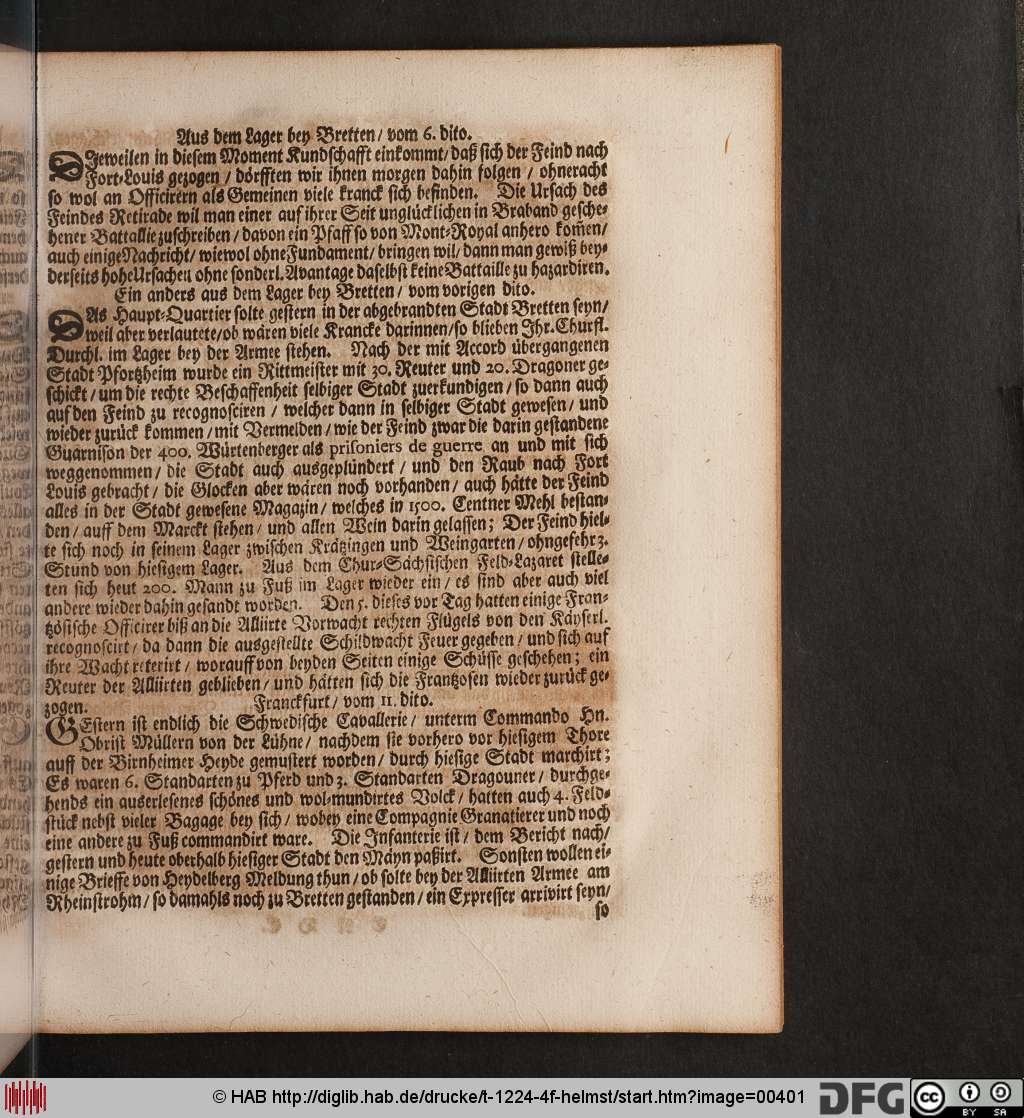 Aus dem Lager bey Bretten / vom 6. dito.
DJeweilen in diesem Moment Kundschafft einkommt / daß sich der Feind nach
Fort-Louis gezogen / dörfften wir ihnen morgen dahin folgen / ohneracht
so wol an Officirern als Gemeinen viele kranck sich befinden. Die Ursach des
Feindes Retirade wil man einer auf ihrer Seit unglücklichen in Braband gesche-
hener Battallie zuschreiben / davon ein Pfaff so von Mont-Royal anhero kom̃en /
auch einige Nachricht / wiewol ohne Fundament / bringen wil / dann man gewiß bey-
derseits hohe Ursachen ohne sonderl. Avantage daselbst keine Battaille zu hazardiren.
Ein anders aus dem Lager bey Bretten / vom vorigen dito.
DAs Haupt-Quartier solte gestern in der abgebrandten Stadt Bretten seyn /
weil aber verlautete / ob wären viele Krancke darinnen / so blieben Ihr. Churfl.
Durchl. im Lager bey der Armee stehen. Nach der mit Accord übergangenen
Stadt Pfortzheim wurde ein Rittmeister mit 30. Reuter und 20. Dragoner ge-
schickt / um die rechte Beschaffenheit selbiger Stadt zuerkundigen / so dann auch
auf den Feind zu recognosciren / welcher dann in selbiger Stadt gewesen / und
wieder zurück kommen / mit Vermelden / wie der Feind zwar die darin gestandene
Guarnison der 400. Würtenberger als prisoniers de guerre an und mit sich
weggenommen / die Stadt auch ausgeplündert / und den Raub nach Fort
Louis gebracht / die Glocken aber wären noch vorhanden / auch hätte der Feind
alles in der Stadt gewesene Magazin / welches in 1500. Centner Mehl bestan-
den / auff dem Marckt stehen / und allen Wein darin gelassen; Der Feind hiel-
te sich noch in seinem Lager zwischen Krätzingen und Weingarten / ohngefehr 3.
Stund von hiesigem Lager. Aus dem Chur-Sächsischen Feld-Lazaret stelle-
ten sich heut 200. Mann zu Fuß im Lager wieder ein / es sind aber auch viel
andere wieder dahin gesandt worden. Den 5. dieses vor Tag hatten einige Fran-
tzösische Officirer biß an die Alliirte Vorwacht rechten Flügels von den Käyserl.
recognoscirt / da dann die ausgestellte Schildwacht Feuer gegeben / und sich auf
ihre Wacht reterirt / worauff von beyden Seiten einige Schüsse geschehen; ein
Reuter der Alliirten geblieben / und hätten sich die Frantzosen wieder zurück ge-
zogen. Franckfurt / vom 11. dito.
GEstern ist endlich die Schwedische Cavallerie / unterm Commando Hn.
Obrist Müllern von der Lühne / nachdem sie vorhero vor hiesigem Thore
auff der Birnheimer Heyde gemustert worden / durch hiesige Stadt marchirt;
Es waren 6. Standarten zu Pferd und 3. Standarten Dragouner / durchge-
hends ein auserlesenes schönes und wol-mundirtes Volck / hatten auch 4. Feld-
stück nebst vieler Bagage bey sich / wobey eine Compagnie Granatierer und noch
eine andere zu Fuß commandirt ware. Die Infanterie ist / dem Bericht nach /
gestern und heute oberhalb hiesiger Stadt den Mäyn paßirt. Sonsten wollen ei-
nige Brieffe von Heydelberg Meldung thun / ob solte bey der Alliirten Armee am
Rheinstrohm / so damahls noch zu Bretten gestanden / ein Expresser arrivirt seyn /
so
© HAB http://diglib.hab.de/drucke/t-1224-4f-helmst/start.htm?image=00401
DFG
cc BY SA